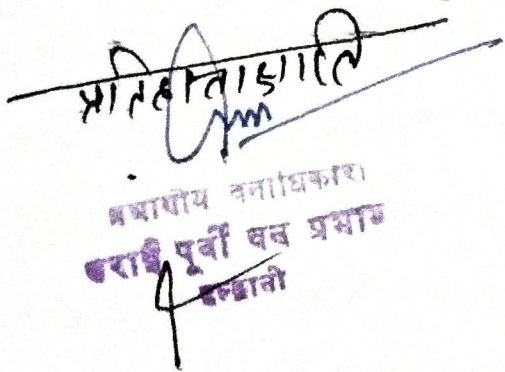 प्रतिहस्ताक्षरित
प्रभागीय वनाधिकारी
तराई पूर्वी वन प्रभाग
हल्द्वानी